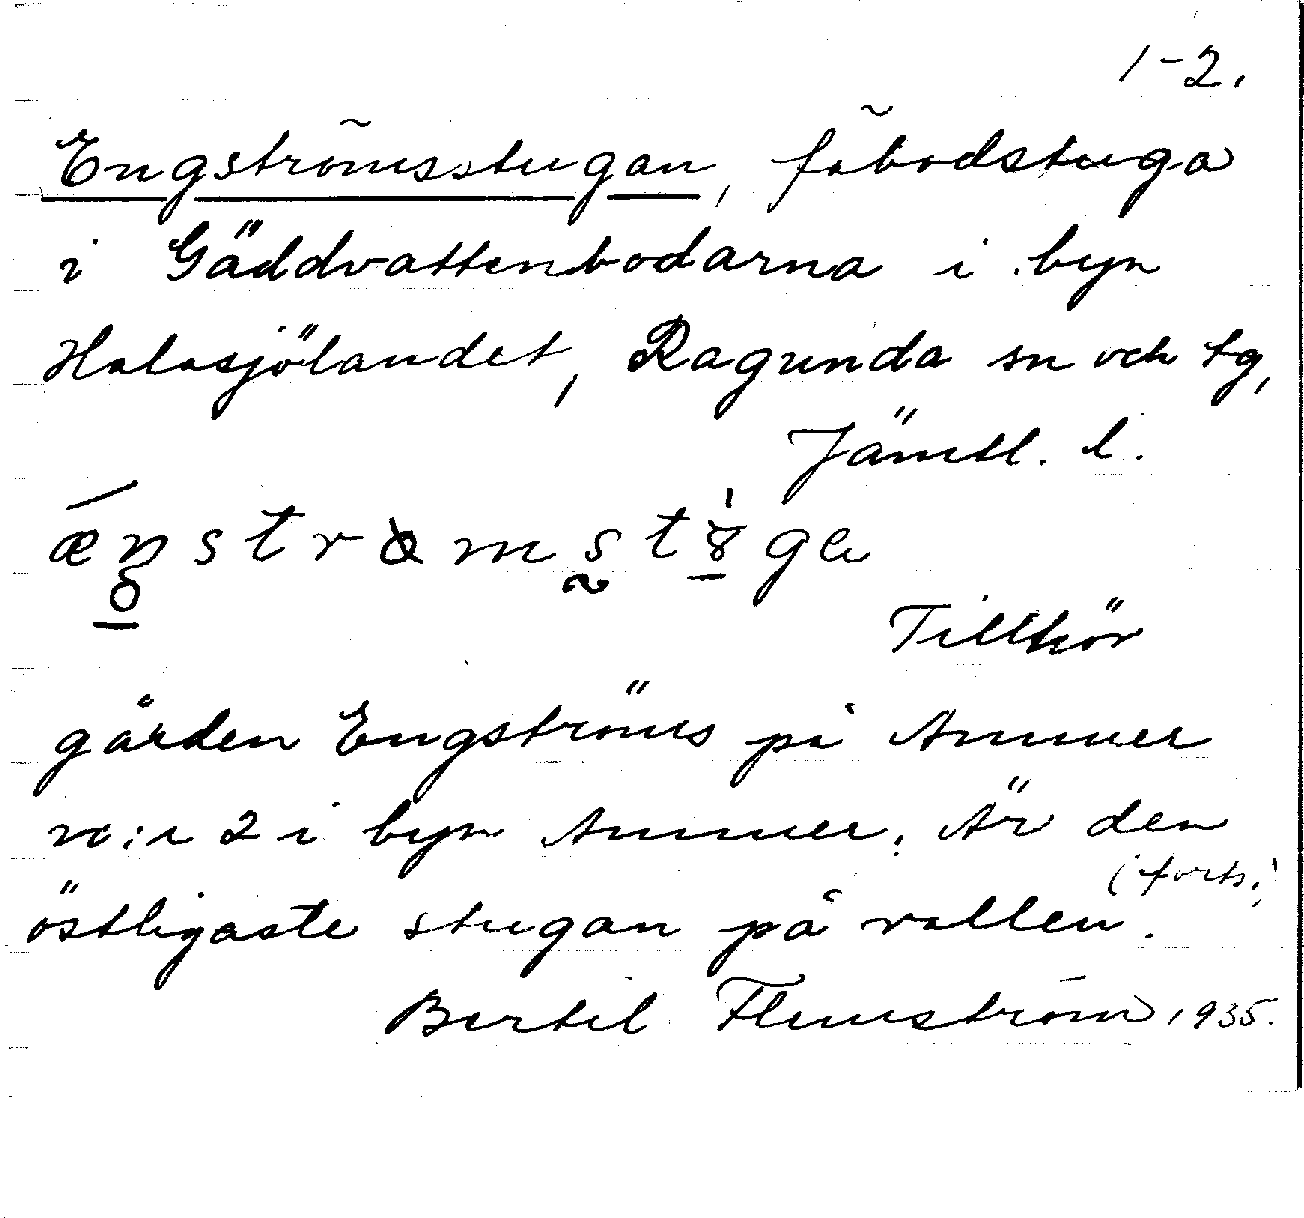 1-2.
Engströmsstugan, fäbodstuga
i Gäddvattenbodarna i byn
Halasjölandet, Ragunda sn och tg,
Jämtl. l.
Tillhör
gården Engströms på Ammer
n:r 2 i byn Ammer. Är den
(forts.)
östligaste stugan på vallen.
Bertil Flemström 1935.